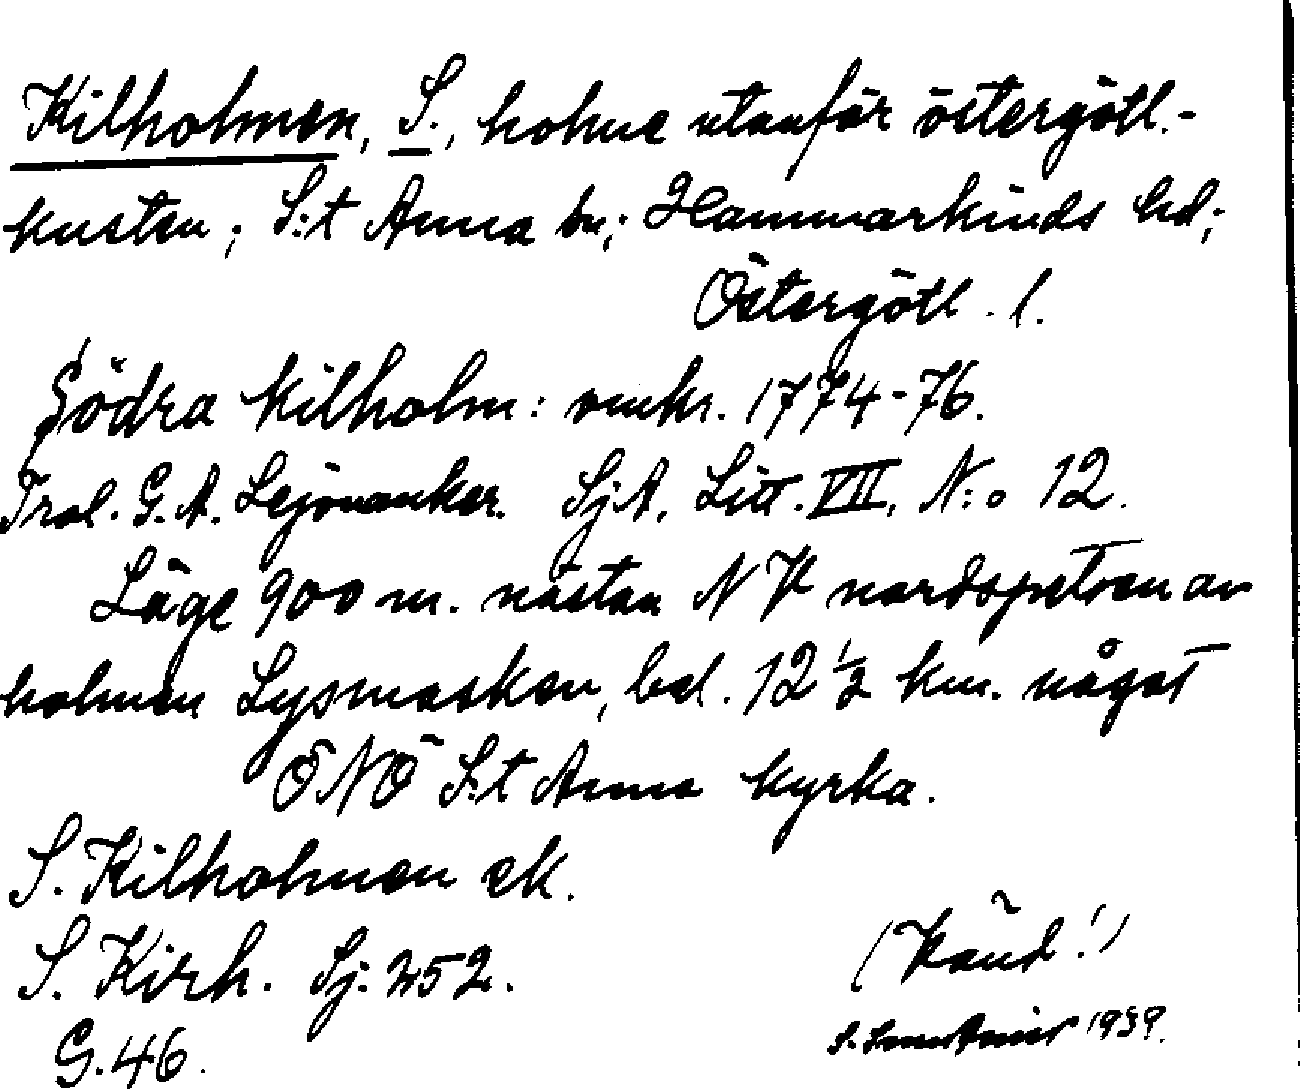 Kilholmen, S., holme utanför östergötl.-
kusten; S:t Anna sn; Hammarkinds hd;
Östergötl. l.
Södra Kilholm: omkr. 1774-76.
Trol. G. A. Lejonanker. SjA, Litt. VII, N:o 12.
Läge 900 m. nästan NV nordspetsen av
holmen Lysmasken, bel. 12 1/2 km. något
ÖNÖ S:t Anna kyrka.
S. Kilholmen ek.
S. Kirh. Sj. 252.
G. 46.
(Känd!)
S. 1939.